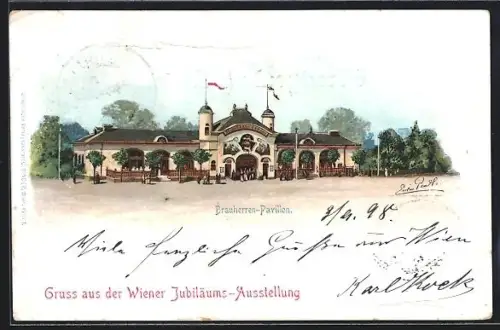 Brauherren-Pavillon.
9/9. 98.
Viele herzliche Grüße aus Wien
Karl Kock
Gruss aus der Wiener Jubiläums-Ausstellung